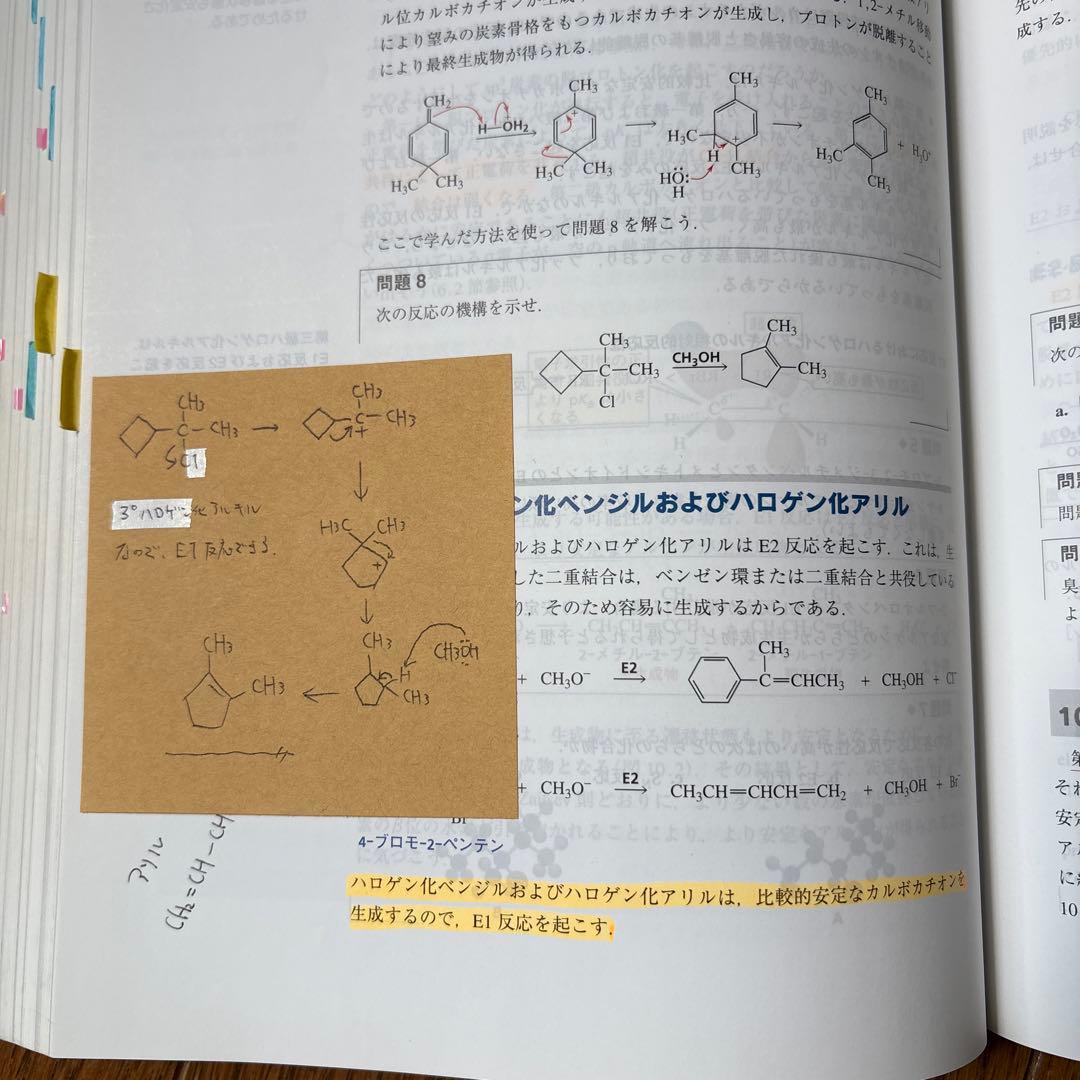 により望みの炭素骨格をもつカルボカチオンが生成し，プロトンが脱離すること
により最終生成物が得られる．
CH₂
H₃C CH₃
H—ÖH₂
CH₃
+
H₃C CH₃
CH₃
H₃C
+
H
CH₃
HÖ:
H
CH₃
H₃C
CH₃
+ H₃O⁺
ここで学んだ方法を使って問題 8 を解こう．
問題 8
次の反応の機構を示せ．
CH₃
C—CH₃
Cl
CH₃OH
CH₃
CH₃
CH₃
C—CH₃
Cl
CH₃
C—CH₃
+
3°ハロゲン化アルキル
なので、E1反応できる.
H₃C CH₃
+
CH₃
H
CH₃
CH₃ÖH
CH₃
CH₃
ン化ベンジルおよびハロゲン化アリル
ルおよびハロゲン化アリルは E2 反応を起こす．これは，生
した二重結合は，ベンゼン環または二重結合と共役している
り，そのため容易に生成するからである．
+ CH₃O⁻ E2 CH₃ C=CHCH₃ + CH₃OH + Cl⁻
+ CH₃O⁻ E2 CH₃CH=CHCH=CH₂ + CH₃OH + Br⁻
Br
4-ブロモ-2-ペンテン
アリル
CH₂=CH-CH
ハロゲン化ベンジルおよびハロゲン化アリルは，比較的安定なカルボカチオンを
生成するので，E1 反応を起こす．
成する．
問題
次の
a.
問
問題
問
臭
よ
10
第
それ
安定
アル
10